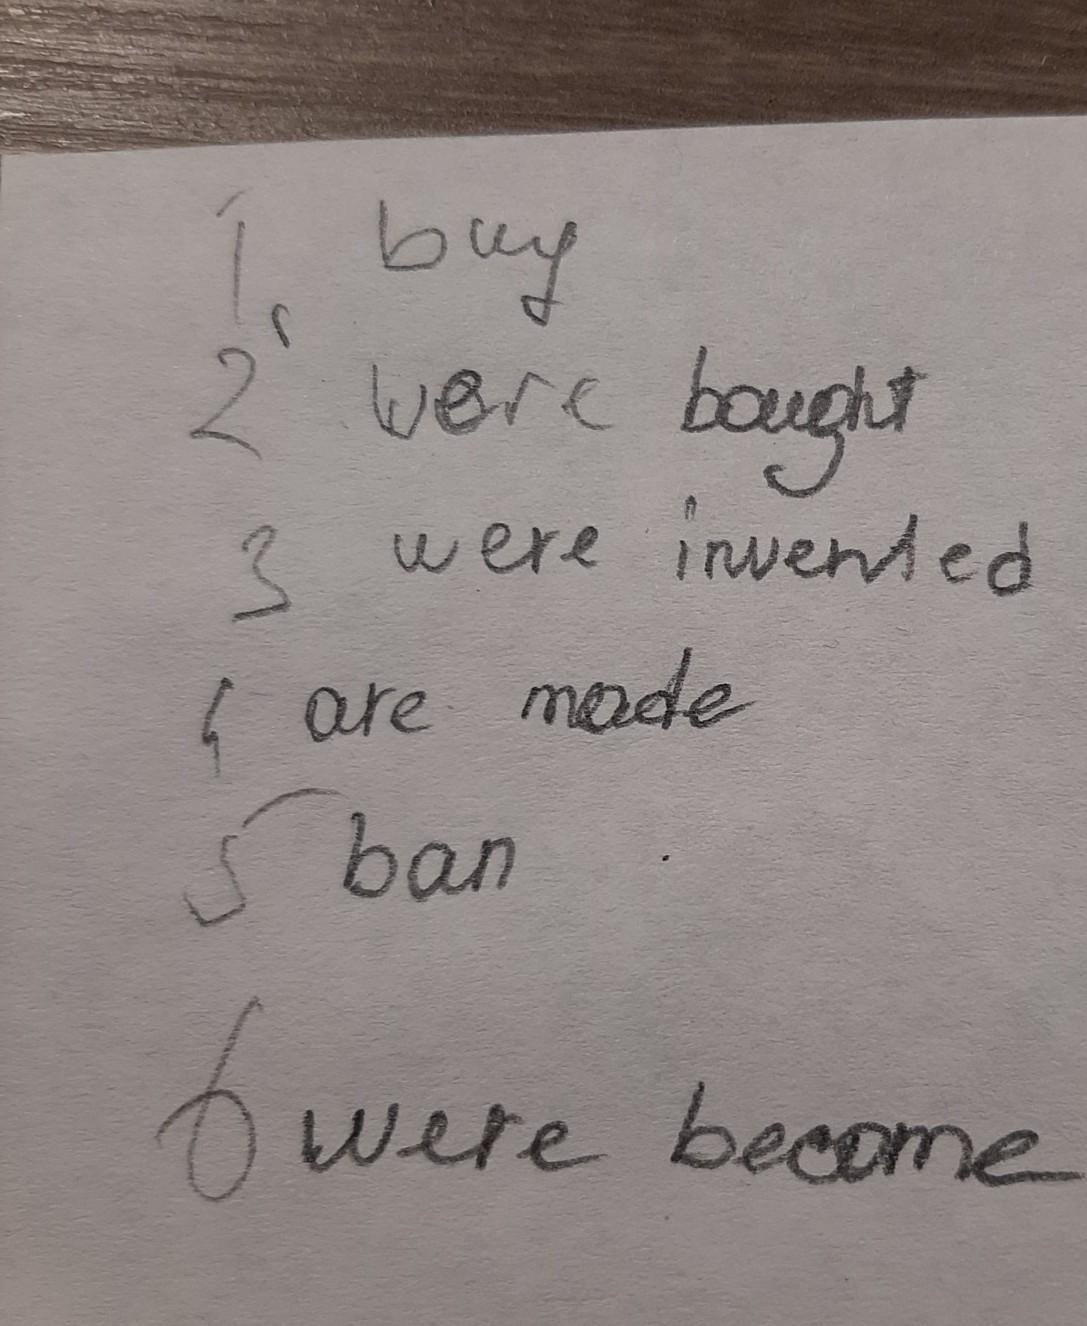 1, buy
2 were bought
3 were invented
4 are made
5 ban
6 were become